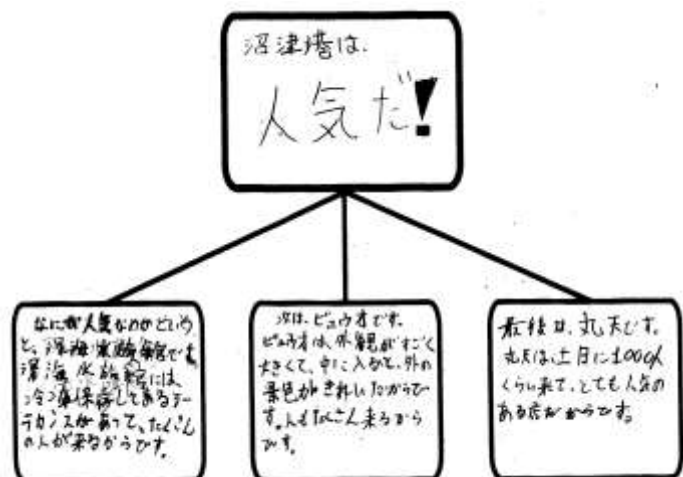 沼津港は、
人気だ!
なにが人気なのかという
と、深海水族館です。
深海水族館には、
冷凍保存してあるシー
ラカンスがあって、たくさん
の人が来るからです。
次は、ビュウオです。
ビュウオは、外観がすごく
大きくて、中に入ると、外の
景色がきれいだからで
す。人もたくさん来るから
です。
最後は、丸天です。
丸天は、土日に1000人
くらい来て、とても人気の
ある店だからです。